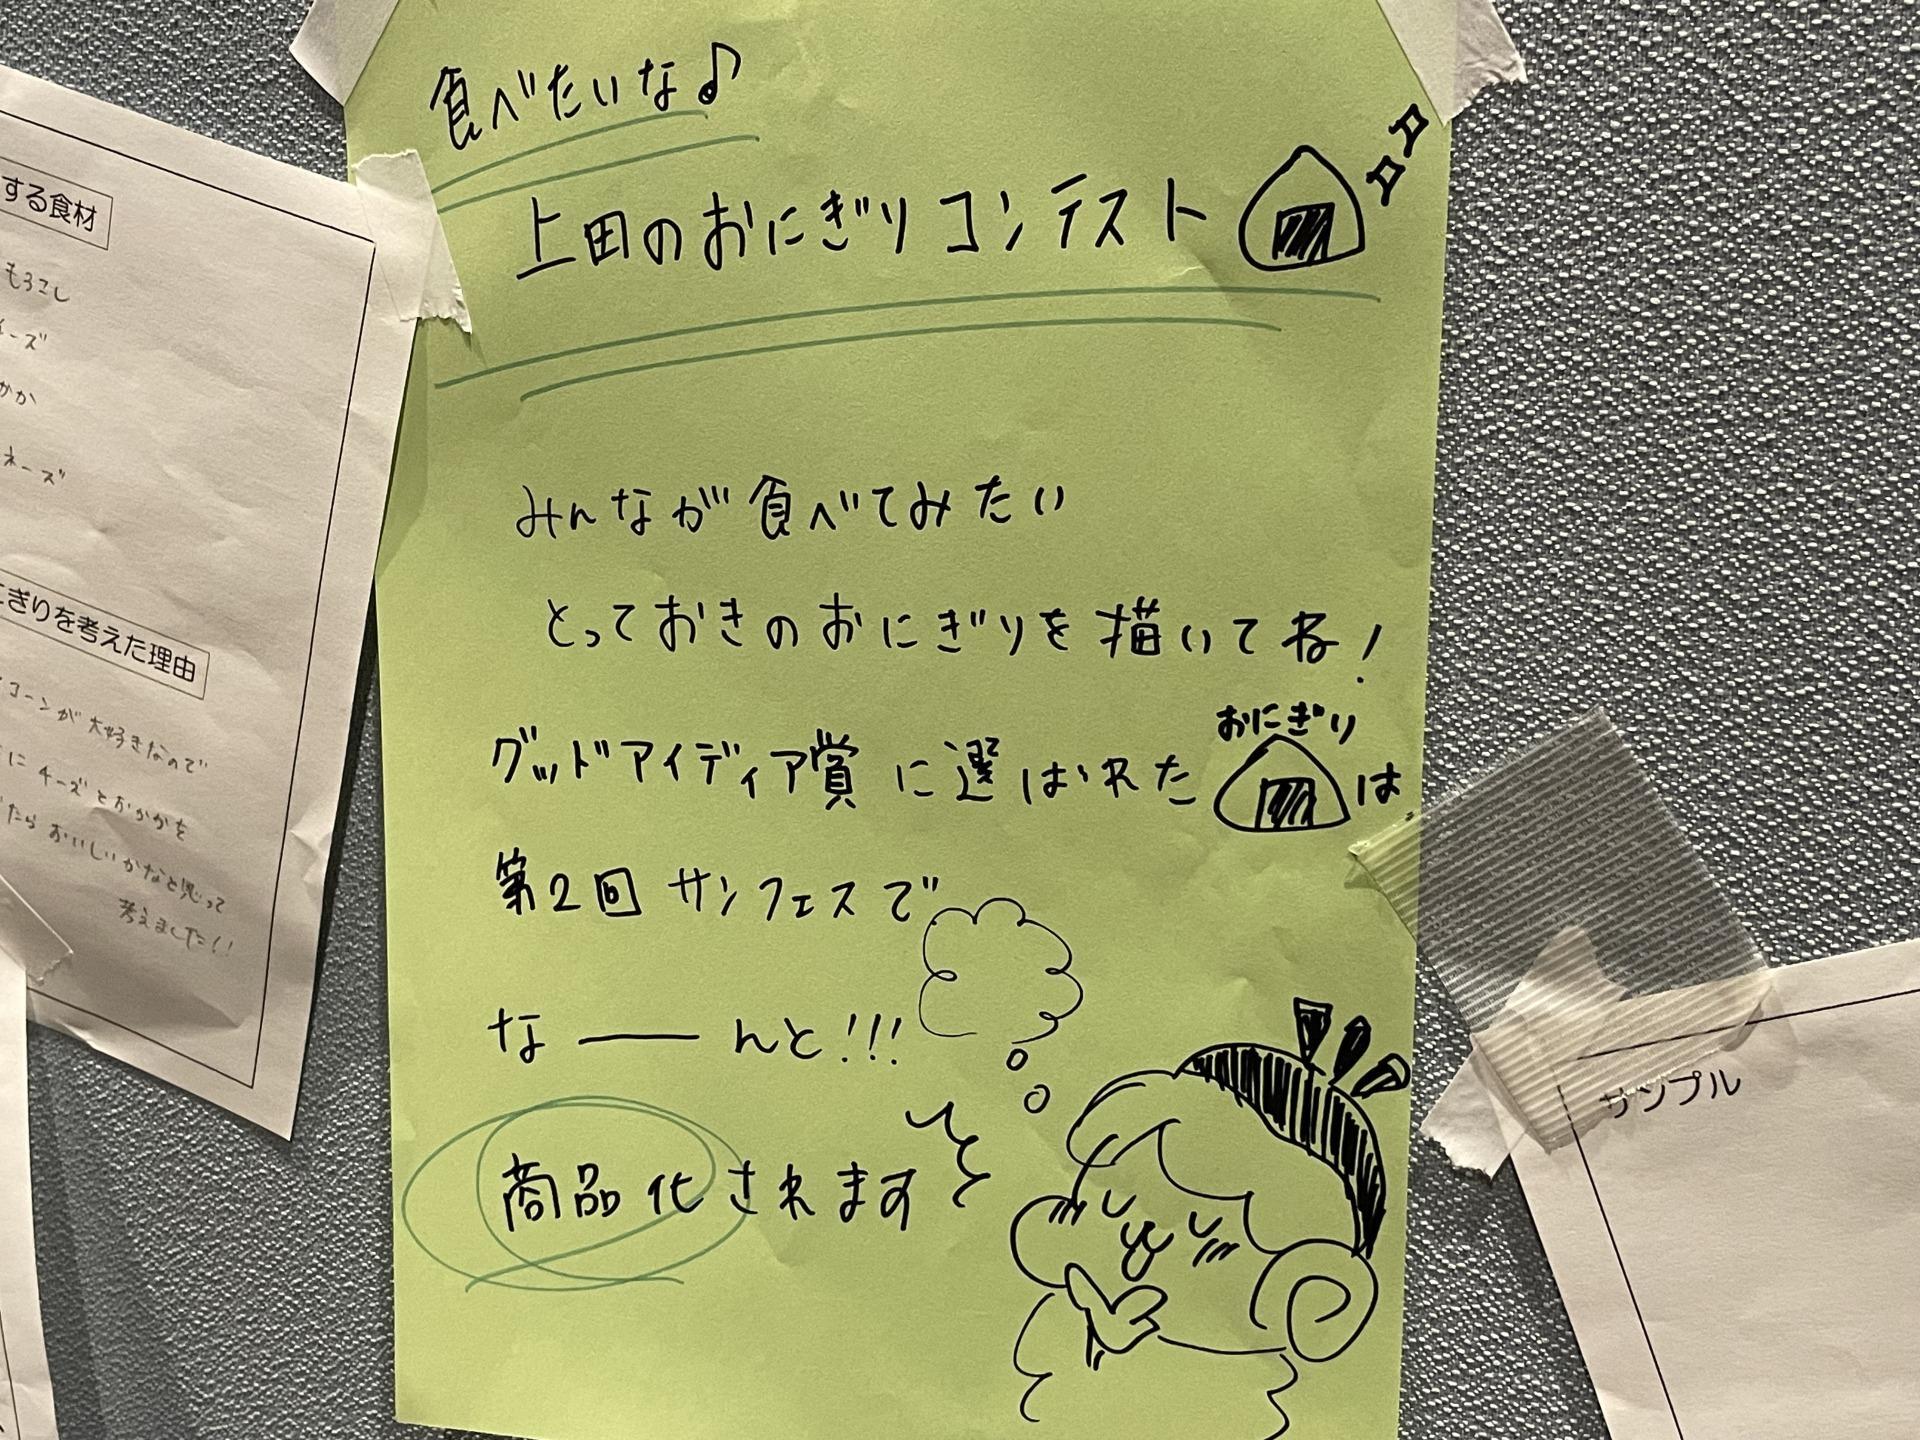 食べたいな♪
上田のおにぎりコンテスト
みんなが食べてみたい
とっておきのおにぎりを描いてね!
おにぎり
グッドアイディア賞に選ばれた は
第2回 サンフェスで
な――んと!!!
商品化されます
する食材
もろこし
チーズ
かか
ネーズ
ぎりを考えた理由
コーンが大好きなので
に チーズとおかかを
たらおいしいかなと思って
考えました!!
サンプル